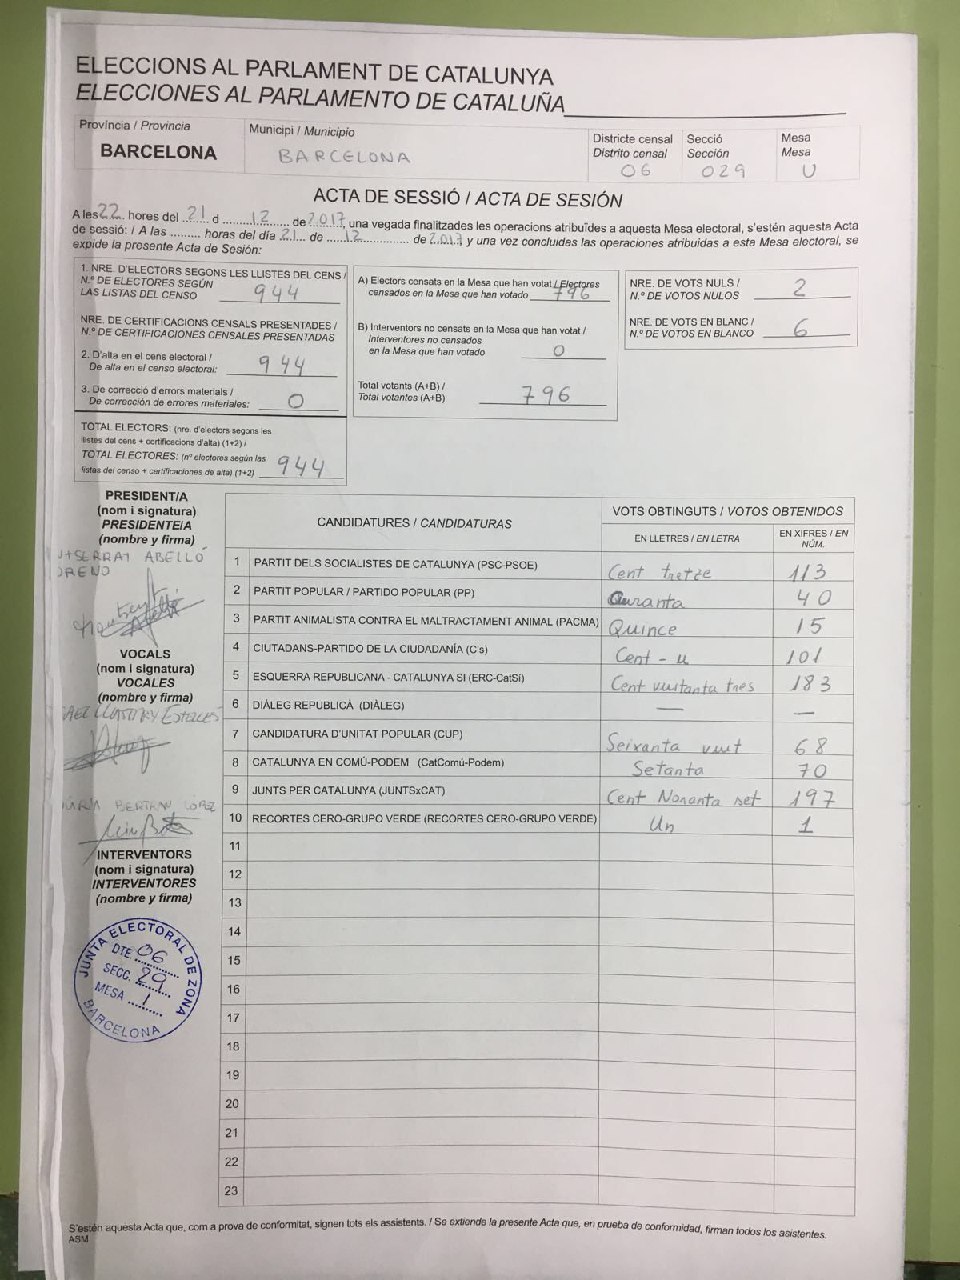 ELECCIONS AL PARLAMENT DE CATALUNYA
ELECCIONES AL PARLAMENTO DE CATALUÑA
Província / Provincia
BARCELONA
Municipi / Municipio
BARCELONA
Districte censal
Distrito censal
06
Secció
Sección
029
Mesa
Mesa
U
ACTA DE SESSIÓ / ACTA DE SESIÓN
A les 22 hores del 21 d 12 de 2017, una vegada finalitzades les operacions atribuïdes a aquesta Mesa electoral, s'estén aquesta Acta
de sessió: / A las ......... horas del día 21 de 12 de 2017 y una vez concluidas las operaciones atribuidas a este Mesa electoral, se
expide la presente Acta de Sesión:
1. NRE. D'ELECTORS SEGONS LES LLISTES DEL CENS /
N.º DE ELECTORES SEGÚN
LAS LISTAS DEL CENSO 944
NRE. DE CERTIFICACIONS CENSALS PRESENTADES /
N.º DE CERTIFICACIONES CENSALES PRESENTADAS
2. D'alta en el cens electoral /
De alta en el censo electoral: 944
3. De correcció d'errors materials /
De corrección de errores materiales: 0
TOTAL ELECTORS: (nre. d'electors segons les
llistes del cens + certificacions d'alta) (1+2) /
TOTAL ELECTORES: (nº electores según las
listas del censo + certificaciones de alta) (1+2) 944
A) Electors censats en la Mesa que han votat / Electores
censados en la Mesa que han votado 796
B) Interventors no censats en la Mesa que han votat /
Interventores no censados
en la Mesa que han votado 0
Total votants (A+B) /
Total votantes (A+B) 796
NRE. DE VOTS NULS /
N.º DE VOTOS NULOS 2
NRE. DE VOTS EN BLANC /
N.º DE VOTOS EN BLANCO 6
PRESIDENT/A
(nom i signatura)
PRESIDENTE/A
(nombre y firma)
ABELLÓ
VOCALS
(nom i signatura)
VOCALES
(nombre y firma)
BERTRAN LOPEZ
INTERVENTORS
(nom i signatura)
INTERVENTORES
(nombre y firma)
JUNTA ELECTORAL DE ZONA
DTE. 06
SECC. 29
MESA 1
BARCELONA
CANDIDATURES / CANDIDATURAS
VOTS OBTINGUTS / VOTOS OBTENIDOS
EN LLETRES / EN LETRA
EN XIFRES / EN NÚM.
1 PARTIT DELS SOCIALISTES DE CATALUNYA (PSC-PSOE) Cent tretze 113
2 PARTIT POPULAR / PARTIDO POPULAR (PP) Quranta 40
3 PARTIT ANIMALISTA CONTRA EL MALTRACTAMENT ANIMAL (PACMA) Quince 15
4 CIUTADANS-PARTIDO DE LA CIUDADANÍA (C's) Cent - u 101
5 ESQUERRA REPUBLICANA - CATALUNYA SÍ (ERC-CatSí) Cent vuitanta tres 183
6 DIÀLEG REPUBLICÀ (DIÀLEG) — —
7 CANDIDATURA D'UNITAT POPULAR (CUP) Seixanta vuit 68
8 CATALUNYA EN COMÚ-PODEM (CatComú-Podem) Setanta 70
9 JUNTS PER CATALUNYA (JUNTSxCAT) Cent Noranta set 197
10 RECORTES CERO-GRUPO VERDE (RECORTES CERO-GRUPO VERDE) Un 1
11
12
13
14
15
16
17
18
19
20
21
22
23
S'estén aquesta Acta que, com a prova de conformitat, signen tots els assistents. / Se extiende la presente Acta que, en prueba de conformidad, firman todos los asistentes.
ASM